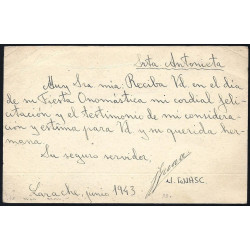 Srta Antonieta
Muy Sra mia Reciba Vd en el día
de su Fiesta Onomástica mi cordial feli-
citación y el testimonio de mi considera-
ción y estima para Vd y su querida her-
mana
Su seguro servidor,
Larache, junio 1943